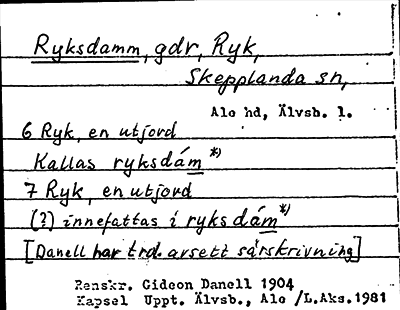 Ryksdamm, gdr, Ryk,
Skepplanda sn,
Ale hd, Älvsb. l.
6 Ryk, en utjord
Kallas ryksdám *)
7 Ryk, en utjord
(?) innefattas i ryksdám *)
[Danell har trd. avsett särskrivning]
Renskr. Gideon Danell 1904
Kapsel Uppt. Älvsb., Ale /L.Aks.1981